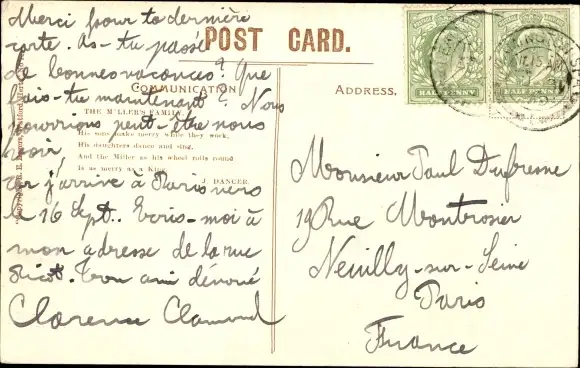 POST CARD.
COMMUNICATION
ADDRESS.
HALF PENNY
HALF PENNY
Merci pour ta dernière
carte. As-tu passé
de bonnes vacances? Que
fais-tu maintenant? Nous
pourrions peut-être nous
voir,
car j'arrive à Paris vers
le 16 Sept.. Ecris-moi à
mon adresse de la rue
Ton ami dévoué
Clarence
THE MILLER'S FAMILY.
His sons make merry while they work,
His daughters dance and sing,
And the Miller as his wheel rolls round
Is as merry as a King.
J. DANCER.
Monsieur Paul Dufresne
19 Rue Montrosier
Neuilly-sur-Seine
Paris
France